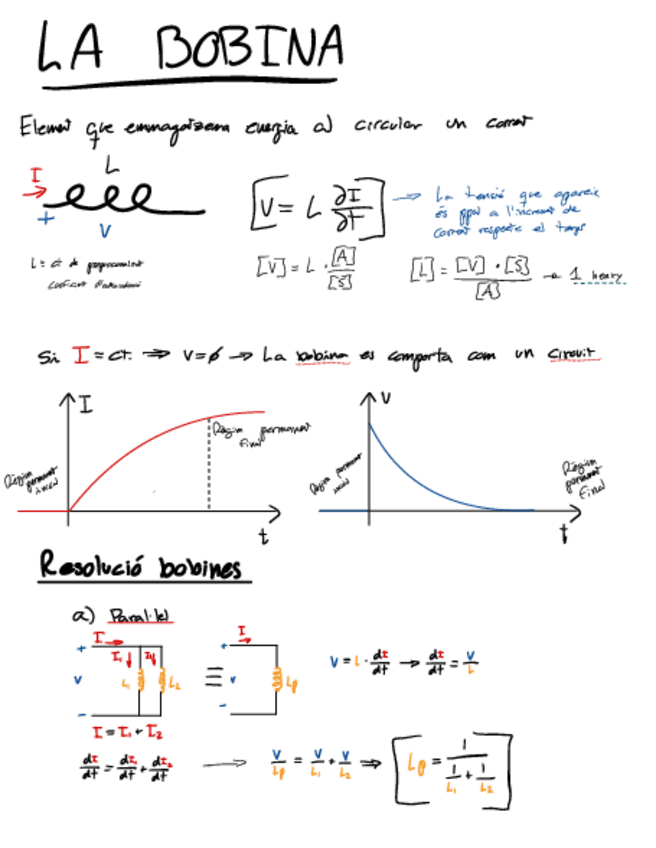 LA BOBINA
Element que emmagatzema energia al circular un corrent
L
I
+
V
[V = L ∂I/∂t] → La tensió que apareix
és ppal a l'increment de
corrent respecte el temps
L = ct de proporcionalitat
coeficient d'autoinducció
[V] = L · [A]/[S]
[L] = [V] · [S]/[A] → 1 henry
Si I = ct. ⇒ V = ∅ → La bobina es comporta com un circuit
I
Règim permanent inicial
Règim permanent final
t
V
Règim permanent inicial
Règim permanent final
t
Resolució bobines
a) Paral·lel
+ I
I₁ I₂
V L₁ L₂
-
≡
I
+
V Lp
-
V = L · dI/dt → dI/dt = V/L
I = I₁ + I₂
dI/dt = dI₁/dt + dI₂/dt → V/Lp = V/L₁ + V/L₂ ⇒ [Lp = 1/(1/L₁ + 1/L₂)]